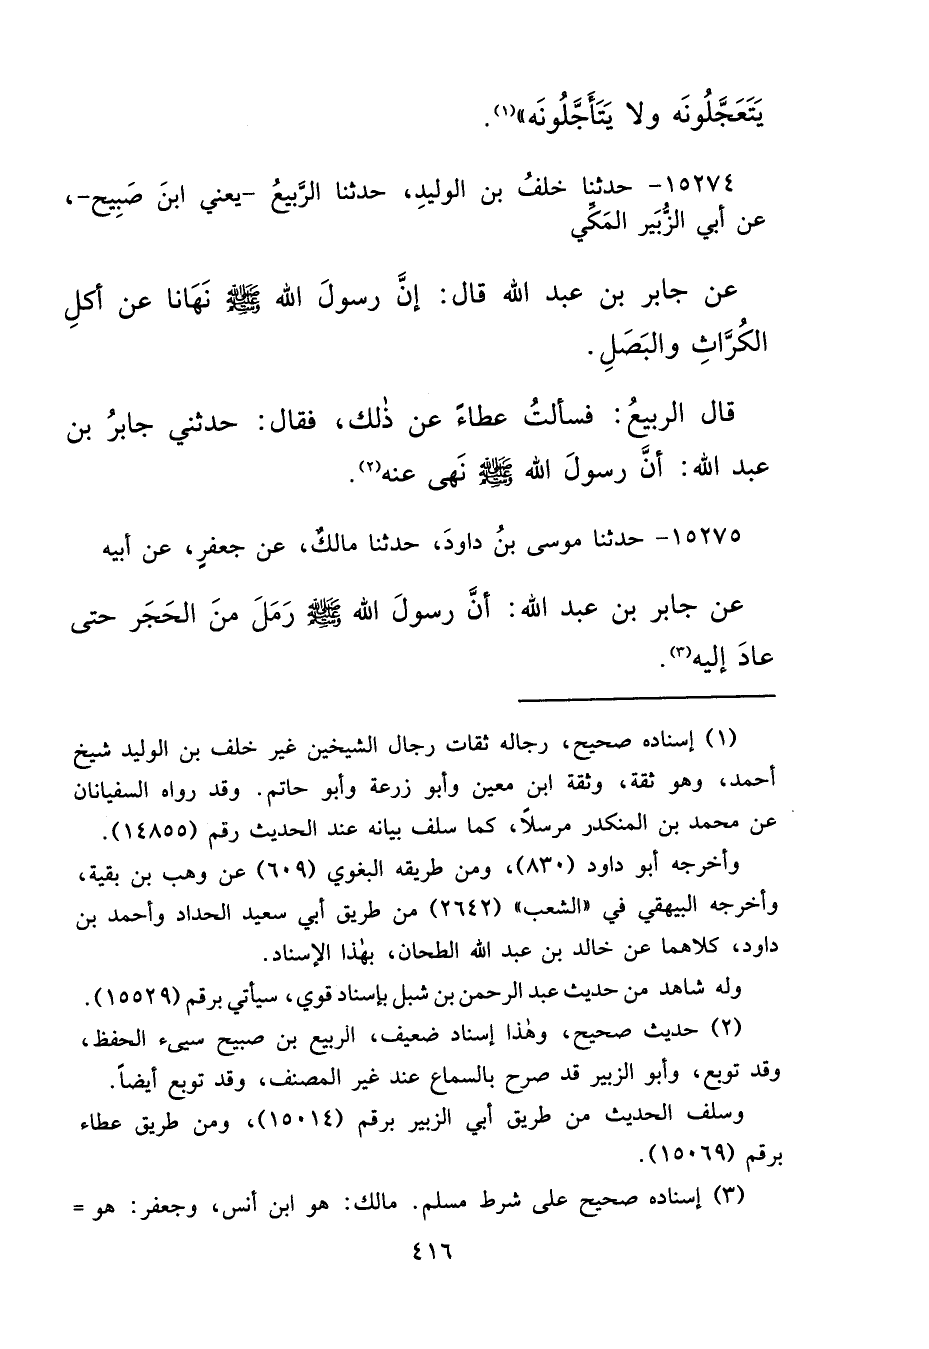 يَتَعَجَّلُونَه ولا يَتَأَجَّلُونَه»(١).
١٥٢٧٤- حدثنا خلفُ بن الوليدِ، حدثنا الرَّبيعُ -يعني ابنَ صَبِيح-،
عن أبي الزُّبَير المَكِّي
عن جابر بن عبد الله قال: إنَّ رسولَ الله ﷺ نَهَانا عن أكلِ
الكُرَّاثِ والبَصَلِ.
قال الربيعُ: فسألتُ عطاءً عن ذٰلك، فقال: حدثني جابرُ بن
عبد الله: أنَّ رسولَ الله ﷺ نَهى عنه(٢).
١٥٢٧٥- حدثنا موسى بنُ داودَ، حدثنا مالكٌ، عن جعفرٍ، عن أبيه
عن جابر بن عبد الله: أنَّ رسولَ الله ﷺ رَمَلَ منَ الحَجَر حتى
عادَ إليه(٣).
(١) إسناده صحيح، رجاله ثقات رجال الشيخين غير خلف بن الوليد شيخ
أحمد، وهو ثقة، وثقة ابن معين وأبو زرعة وأبو حاتم. وقد رواه السفيانان
عن محمد بن المنكدر مرسلاً، كما سلف بيانه عند الحديث رقم (١٤٨٥٥).
وأخرجه أبو داود (٨٣٠)، ومن طريقه البغوي (٦٠٩) عن وهب بن بقية،
وأخرجه البيهقي في «الشعب» (٢٦٤٢) من طريق أبي سعيد الحداد وأحمد بن
داود، كلاهما عن خالد بن عبد الله الطحان، بهٰذا الإسناد.
وله شاهد من حديث عبد الرحمن بن شبل بإسناد قوي، سيأتي برقم (١٥٥٢٩).
(٢) حديث صحيح، وهٰذا إسناد ضعيف، الربيع بن صبيح سيىء الحفظ،
وقد توبع، وأبو الزبير قد صرح بالسماع عند غير المصنف، وقد توبع أيضاً.
وسلف الحديث من طريق أبي الزبير برقم (١٥٠١٤)، ومن طريق عطاء
برقم (١٥٠٦٩).
(٣) إسناده صحيح على شرط مسلم. مالك: هو ابن أنس، وجعفر: هو =
٤١٦